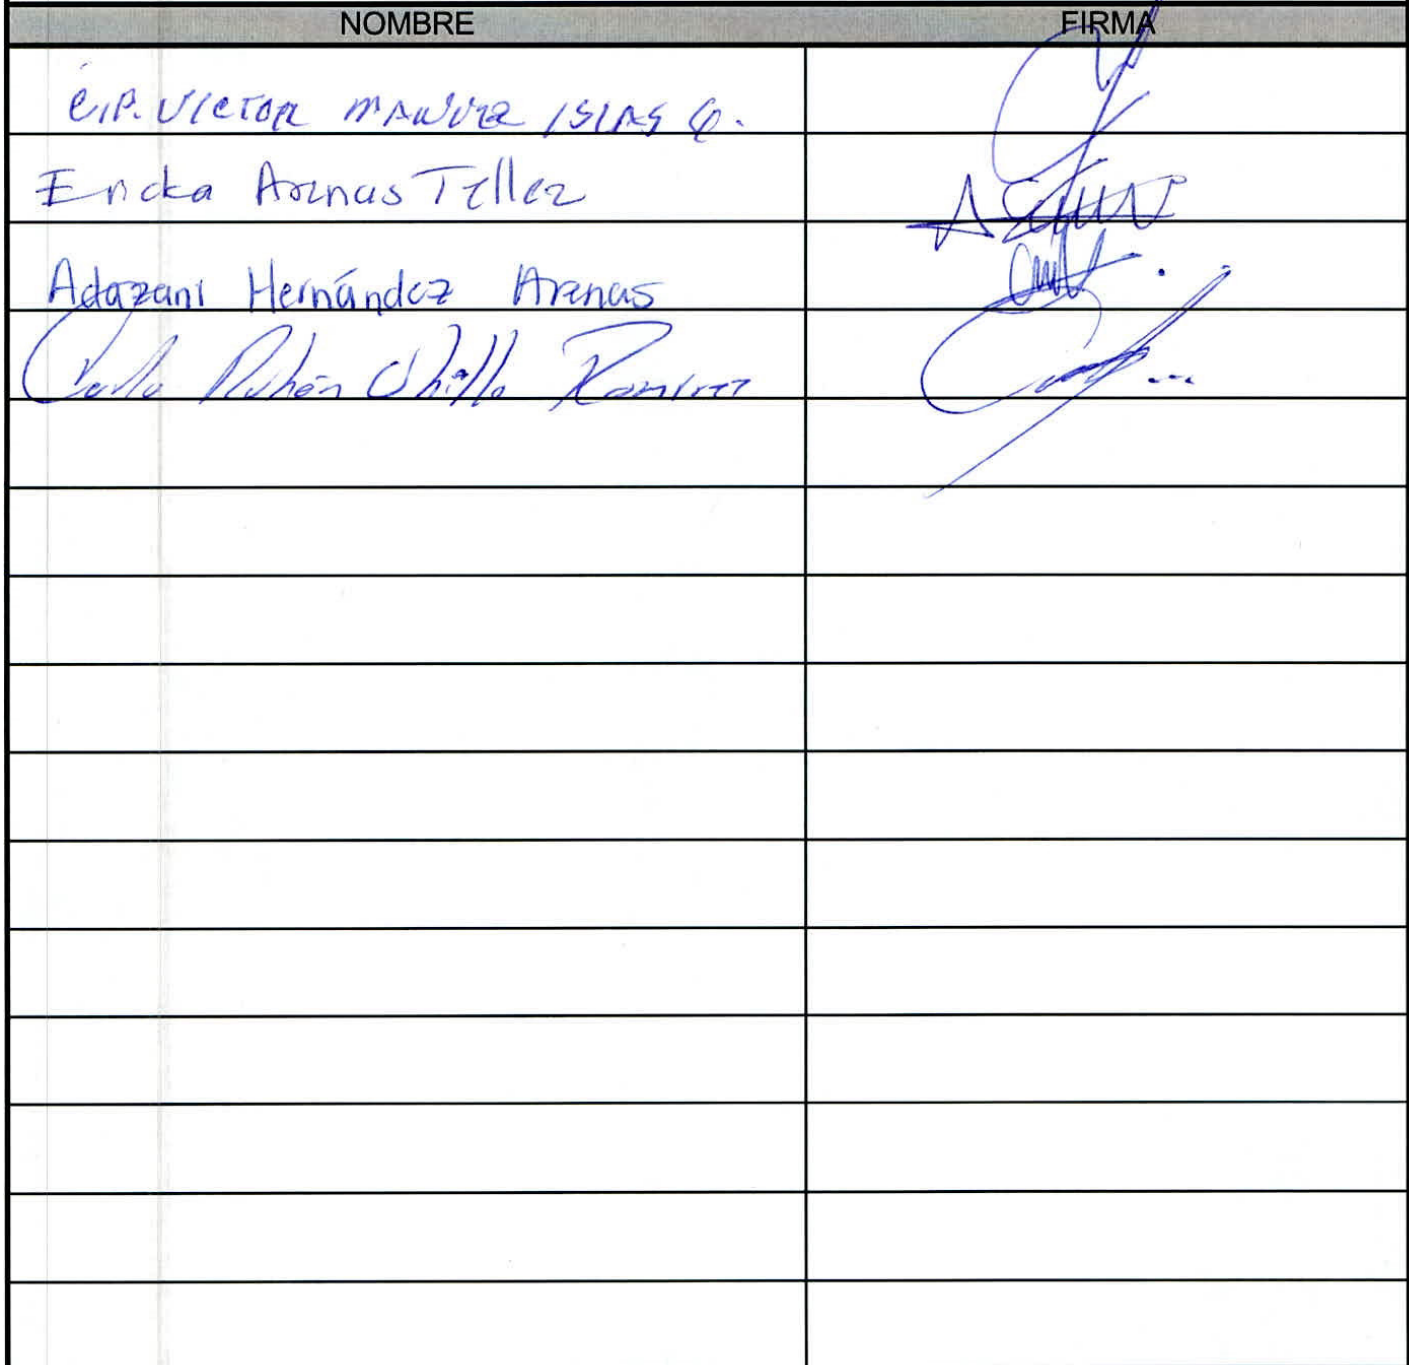 NOMBRE FIRMA
C.P. VICTOR MANUEL ISLAS
Ericka Arenas Tellez
Adazani Hernández Arenas
Rubén Ramírez